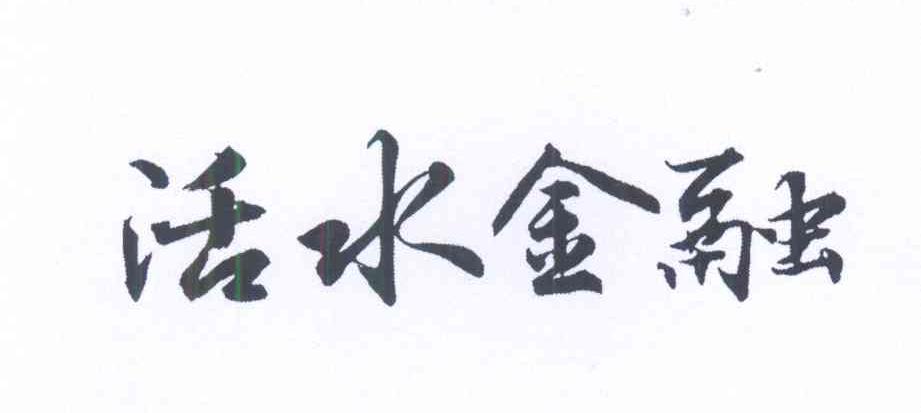 活水金融